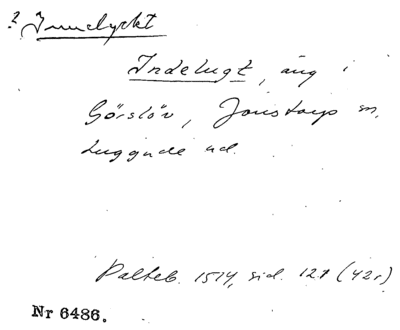 ? Inmelyckt
Indelugt, äng i
Görslöv, Jonstorps sn,
Luggude hd.
Palteb. 1514, sid. 121 (42r)
Nr 6486.